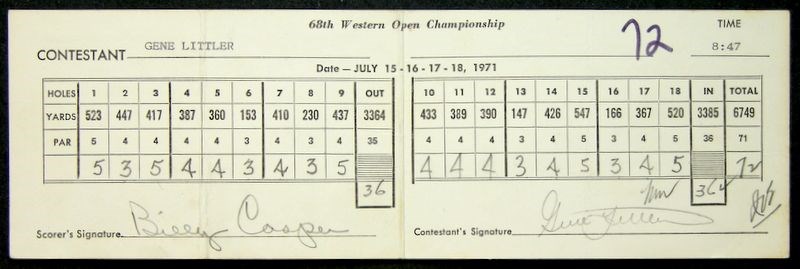 68th Western Open Championship
72
TIME
CONTESTANT GENE LITTLER
8:47
Date — JULY 15 - 16 - 17 - 18, 1971
HOLES 1 2 3 4 5 6 7 8 9 OUT
YARDS 523 447 417 387 360 153 410 230 437 3364
PAR 5 4 4 4 4 3 4 3 4 35
5 3 5 4 4 3 4 3 5
36
10 11 12 13 14 15 16 17 18 IN TOTAL
433 389 390 147 426 547 166 367 520 3385 6749
4 4 4 3 4 5 3 4 5 36 71
4 4 4 3 4 5 3 4 5 72
36
Scorer's Signature Billy Casper
Contestant's Signature Gene Littler